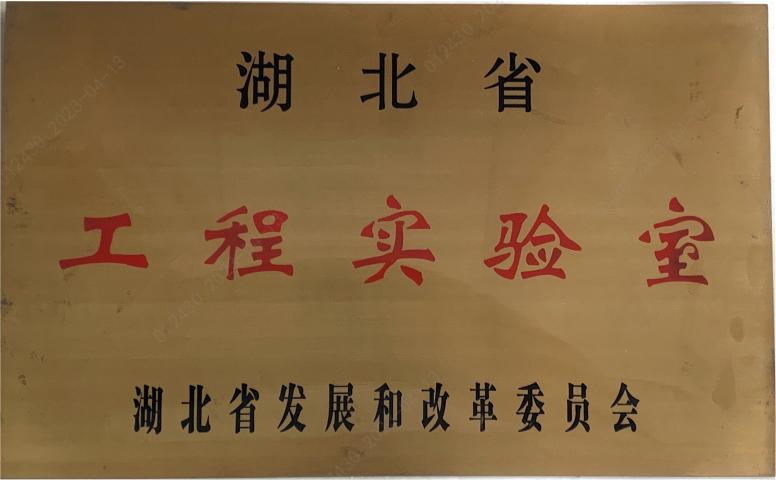 湖北省
工程实验室
湖北省发展和改革委员会